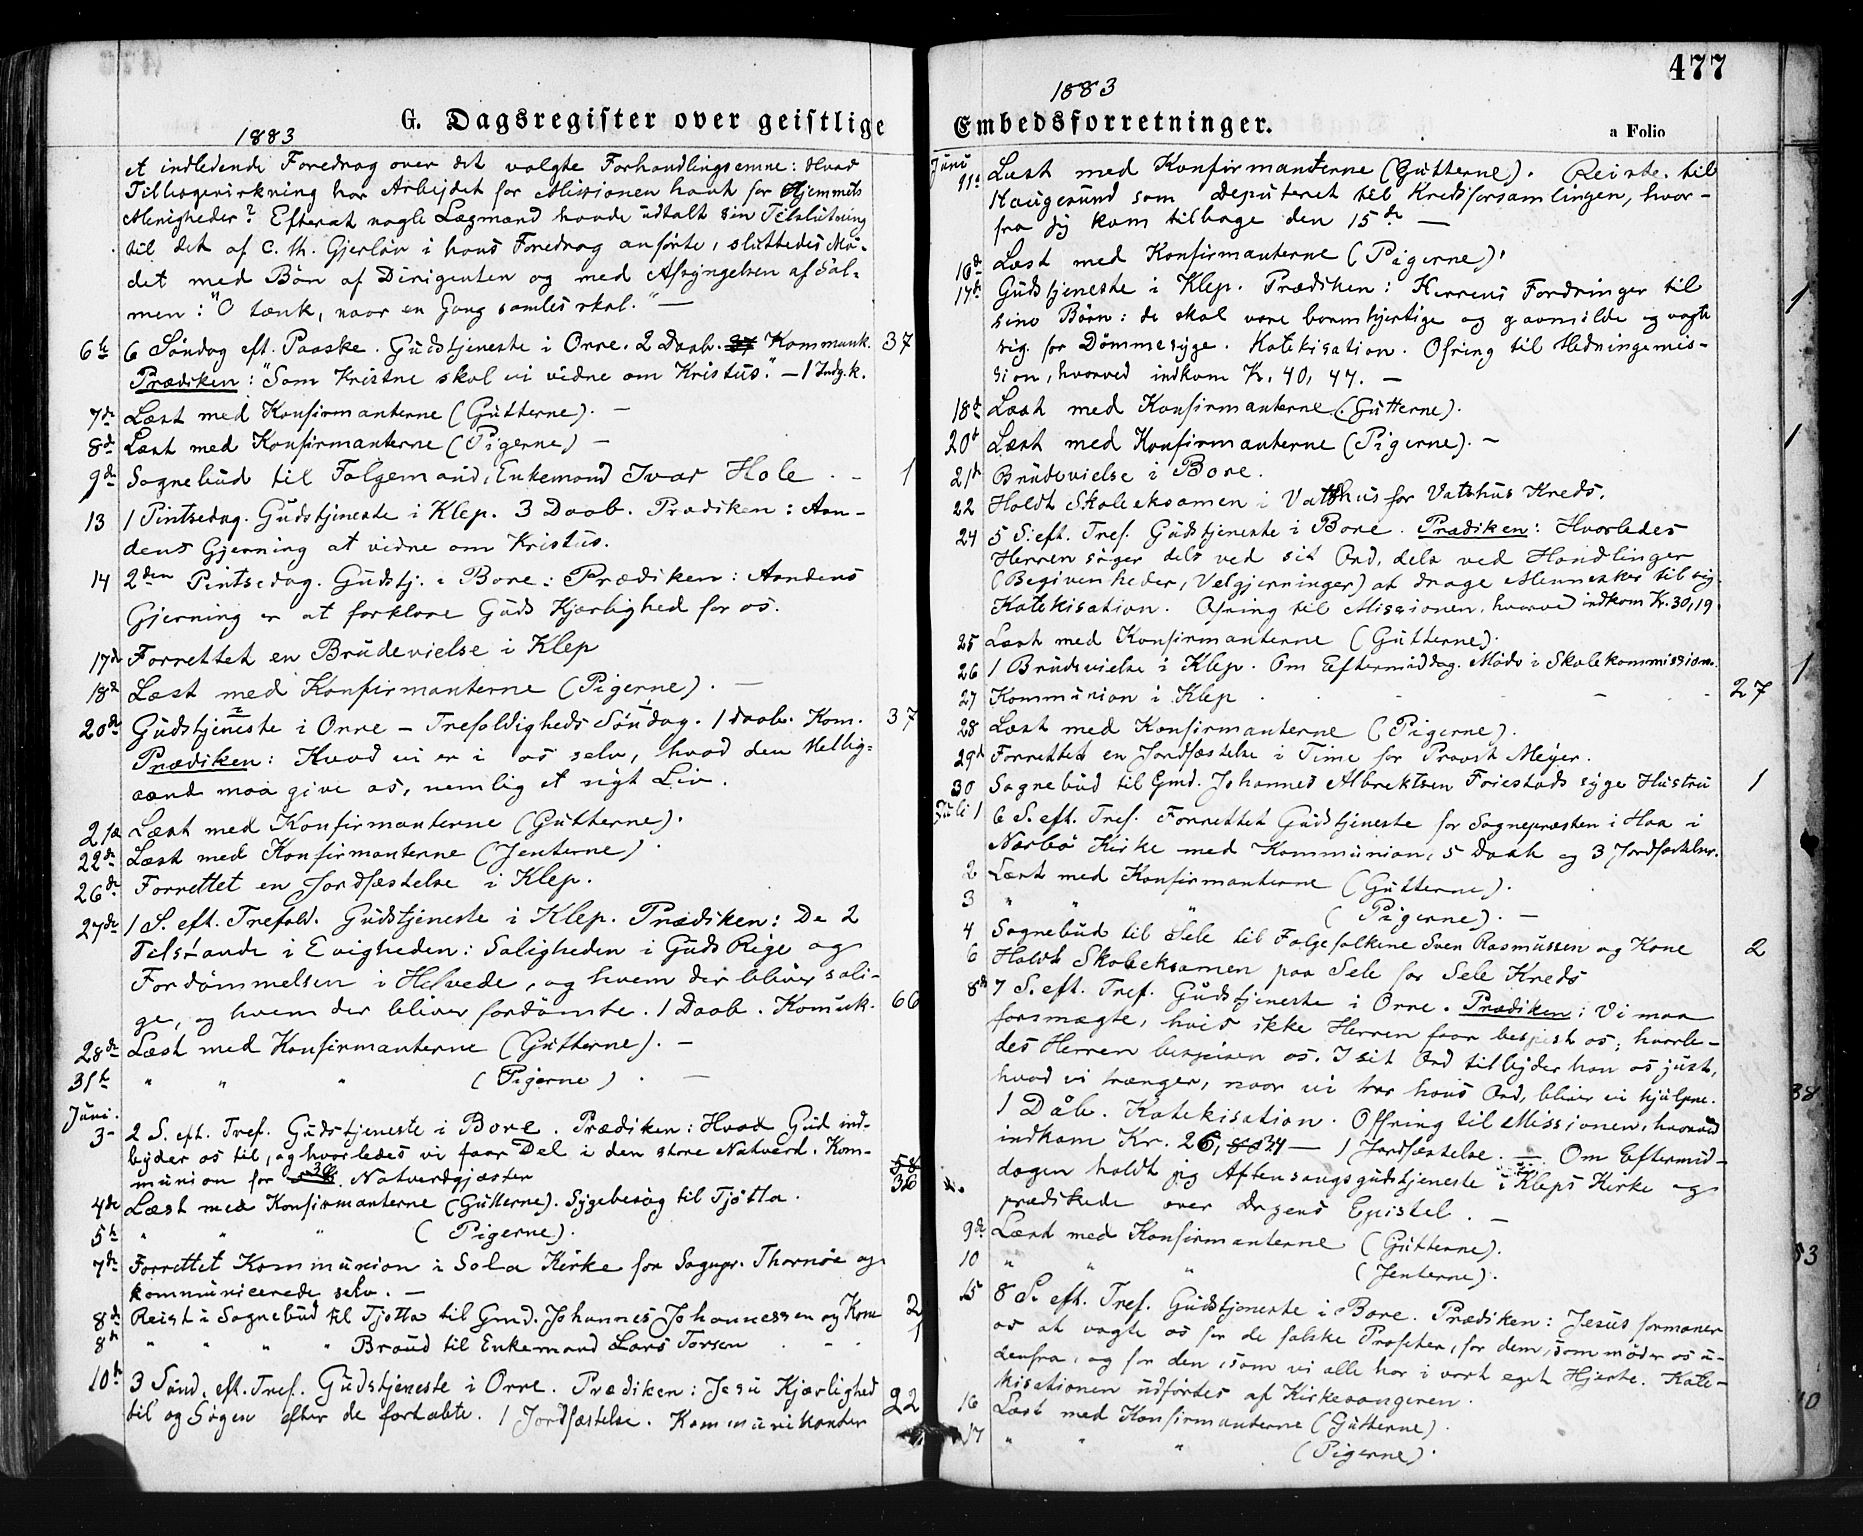 G. Dagsregister over geistlige
1883
et indledende Foredrag over det valgte Forhandlingsemne: Hvad
Tilbagevirkning har Arbejdet for Missionen havt for Hjemmets
Menigheder? Efterat nogle Lægmænd havde udtalt sin Tilslutning
til det af C. Th. Gjerløv i hans Foredrag anførte, sluttedes Mö-
det med Bön af Dirigenten og med Afsyngelsen af Sal-
men: "O tænk, naar en Gang samles skal." —
6te 6 Søndag eft. Paaske. Gudstjeneste i Orre. 2 Daab. Kommunk. 37
Prædiken: "Som Kristne skal vi vidne om Kristus." — 1 Indg.k.
7de Læst med Konfirmanterne (Gutterne). —
8de Læst med Konfirmanterne (Pigerne) —
9de Sognebud til Folgemand, Enkemand Ivar Hole . - 1
13 1 Pintsedag. Gudstjeneste i Klep. 3 Daab. Prædiken: Aan-
dens Gjerning at vidne om Kristus.
14 2den Pintsedag. Gudstj. i Bore. Prædiken: Aandens
Gjerning er at forklare Guds Kjærlighed for os.
17de Forrettet en Brudevielse i Klep
18de Læst med Konfirmanterne (Pigerne). —
20de Gudstjeneste i Orre — Trefoldigheds Søndag. 1 Daab. Kom. 37
Prædiken: Hvad vi er i os selv, hvad den Hellig-
aand maa give os, nemlig et nyt Liv.
21de Læst med Konfirmanterne (Gutterne).
22de Læst med Konfirmanterne (Jenterne).
26de Forrettet en Jordfæstelse i Klep.
27de 1 S. eft. Trefold. Gudstjeneste i Klep. Prædiken: De 2
Tilstande i Evigheden: Saligheden i Guds Rige og
Fordömmelsen i Helvede, og hvem der bliver sali-
ge, og hvem der bliver fordömte. 1 Daab. Komuk. 66
28de Læst med Konfirmanterne (Gutterne). —
31te " " " (Pigerne) . —
Juni.
3- 2 S. eft. Tref. Gudstjeneste i Bore. Prædiken: Hvad Gud ind-
byder os til, og hvorledes vi faar Del i den store Natverd. Kom-
munion for 36 Natverdgjæster 36
4de Læst med Konfirmanterne (Gutterne). Sygebesøg til Tjötta.
5te " " " (Pigerne).
7de Forrettet Kommunion i Sola Kirke for Sognpr. Thornöe og
kommunicerede selv. —
8de Reist i Sognebud til Tjotta til Gmd. Johannes Johannessen og Kone 2
8de " " " " Braud til Enkemand Lars Torsen . - . 1
10de 3 Sönd. eft. Tref. Gudstjeneste i Orre. Prædiken: Jesu Kjærlighed
til og Sögen efter de fortabte. 1 Jordfæstelse. Kommunikanter 22
477
1883
Embedsforretninger.
a Folio
Juni
11te Læst med Konfirmanterne (Gutterne). Reiste til
Haugesund som Deputeret til Kredsforsamlingen, hvor-
fra jeg kom tilbage den 15de —
16de Læst med Konfirmanterne (Pigerne).
17de Gudstjeneste i Klep. Prædiken: Herrens Fordringer til
sine Børn: de skal være barmhjertige og gavmilde og vogte
sig for Dömmesyge. Katekisation. Ofring til Hedningemis-
sion, hvorved indkom Kr. 40,47. —
18de Læst med Konfirmanterne (Gutterne).
20de Læst med Konfirmanterne (Pigerne). —
21de Brudevielse i Bore.
22 Holdt Skoleeksamen i Vatshus for Vatshus Kreds.
24 5 S. eft. Tref. Gudstjeneste i Bore. Prædiken: Hvorledes
Herren söger dels ved sit Ord, dels ved Handlinger
(Begivenheder, Velgjerninger) at drage Mennesker til sig.
Katekisation. Ofring til Missionen, hvorved indkom Kr. 30,19
25 Læst med Konfirmanterne (Gutterne).
26 1 Brudevielse i Klep. Om Eftermiddag. Möde i Skolekommissionen.
27 Kommunion i Klep . - - - - 27
28 Læst med Konfirmanterne (Pigerne).
29de Forrettet en Jordfæstelse i Time for Provst Meyer.
30 Sognebud til Gmd. Johannes Albrektsen Friestads syge Hustru 1
Juli 1 6 S. eft. Tref. Forrettet Gudstjeneste for Sognepræsten i Haa i
Nærbö Kirke med Kommunion, 5 Daab og 3 Jordfæstelser.
2 Læst med Konfirmanterne (Gutterne).
3 " " " (Pigerne). —
4 Sognebud til Sele til Folgefolkene Sven Rasmussen og Kone 2
6 Holdt Skoleeksamen paa Sele for Sele Kreds
8de 7 S. eft. Tref. Gudstjeneste i Orre. Prædiken: Vi maa
forsmægte, hvis ikke Herren faar bespist os; hvorle-
des Herren bespiser os. I sit Ord tilbyder han os just,
hvad vi trænger, naar vi tror hans Ord, bliver vi hjulpne.
1 Dåb. Katekisation. Offring til Missionen, hvorved
indkom Kr. 26,34 — 1 Jordfæstelse. —. Om Eftermid-
dagen holdt jeg Aftensangsgudstjeneste i Kleps Kirke og
prædikede over Dagens Epistel. —
9de Læst med Konfirmanterne (Gutterne).
10 " " " (Jenterne).
15 8 S. eft. Tref. Gudstjeneste i Bore. Prædiken: Jesus formaner
os at vogte os for de falske Profeter, for dem, som möder os u-
denfra, og for den, som vi alle har i vort eget Hjerte. Kate-
kisationen udførtes af Kirkesangeren.
16 Læst med Konfirmanterne (Gutterne).
17 " " " (Pigerne).